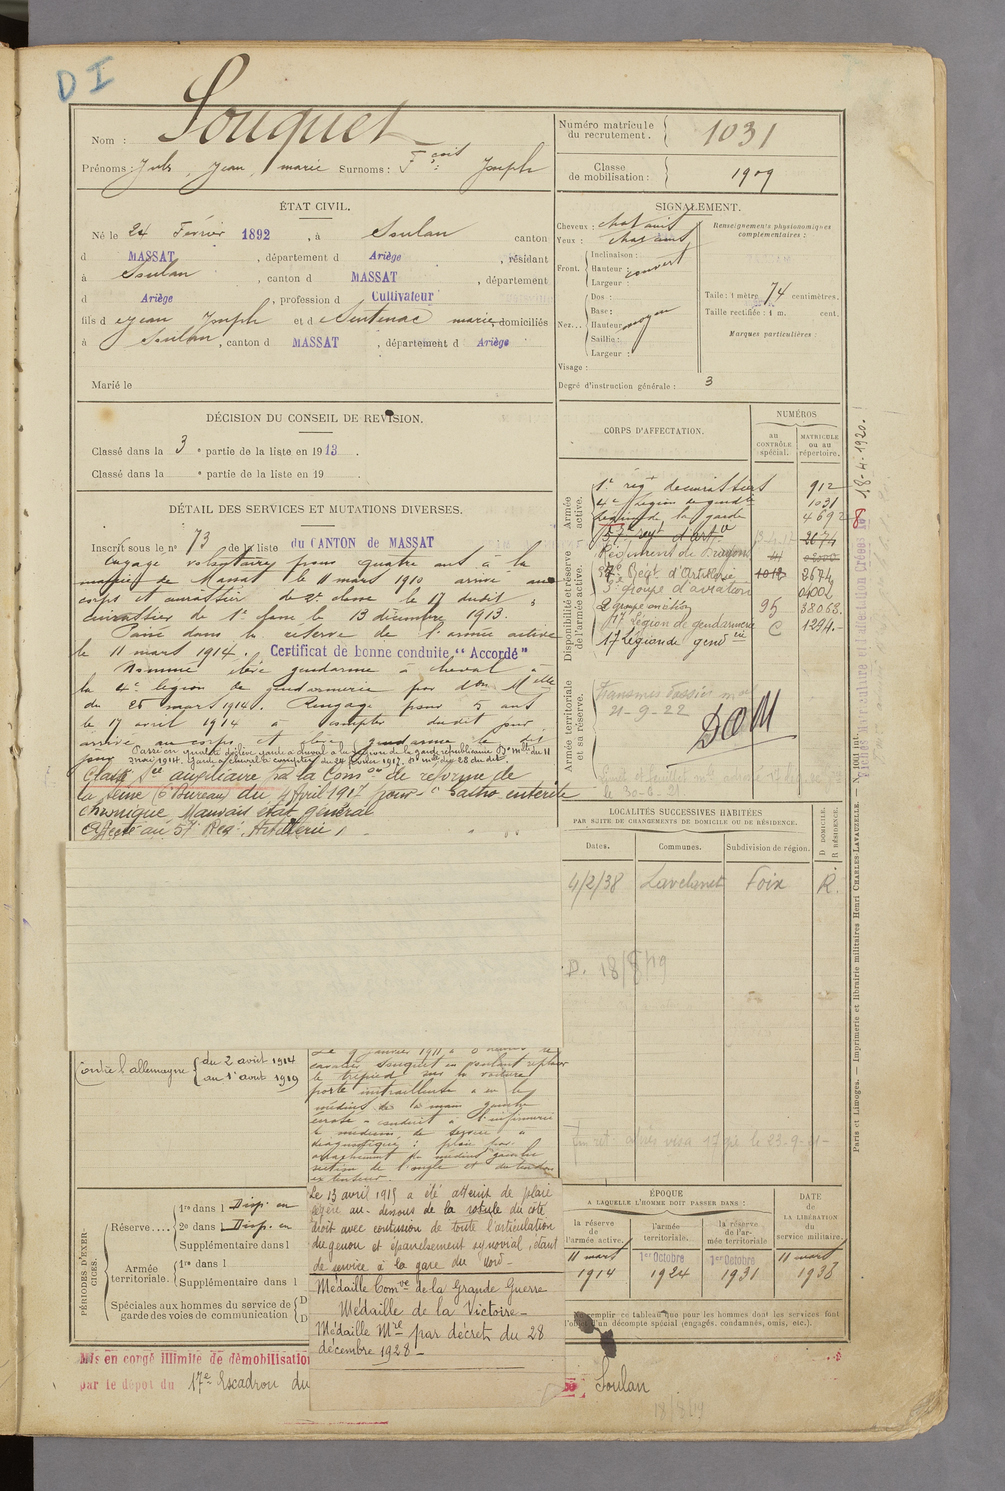 D I
Nom : Souquet
Prénoms : Jules, Jean, marie Surnoms : Fçois Joseph
Numéro matricule
du recrutement. 1031
Classe
de mobilisation : 1909
ÉTAT CIVIL.
Né le 24 Février 1892, à Soulan canton
d MASSAT, département d Ariège, résidant
à Soulan, canton d MASSAT, département
d Ariège, profession d Cultivateur
fils d Jean Joseph et d Sentenac marie, domiciliés
à Soulan, canton d MASSAT, département d Ariège
Marié le
SIGNALEMENT.
Cheveux : chatains
Yeux : chatains
Front. Inclinaison :
Hauteur : couvert
Largeur :
Nez... Dos :
Base :
Hauteur moyen
Saillie :
Largeur :
Visage :
Degré d'instruction générale : 3
Renseignements physionomiques
complémentaires :
Taille : 1 mètre 74 centimètres.
Taille rectifiée : 1 m. cent.
Marques particulières
DÉCISION DU CONSEIL DE REVISION.
Classé dans la 3e partie de la liste en 1913.
Classé dans la e partie de la liste en 19 .
DÉTAIL DES SERVICES ET MUTATIONS DIVERSES.
Inscrit sous le no 73 de la liste du CANTON de MASSAT
Engagé volontaire pour quatre ans à la
mairie de Massat le 11 mars 1910 arrivé au
corps et cuirassier de 2e classe le 17 dudit,
cuirassier de 1e classe le 13 décembre 1913.
Passé dans la réserve de l'armée active
le 11 mars 1914. Certificat de bonne conduite "Accordé"
Nommé élève gendarme à cheval à
la 4e légion de gendarmerie par don Melle
du 25 mars 1914. Rengagé pour 5 ans
le 17 avril 1914 à compter dudit jour
arrivé au corps et élève gendarme le dit
jour Passé en qualité d'élève garde à cheval à la légion de la garde républicaine Dn mlle du 11
mai 1914. Garde à cheval à compter du 24 février 1917. Dn mlle du 28 du dit.
Classé Sce auxiliaire par la Comon de réforme de
la Seine (6e Bureau) du 4 Avril 1917 pour "Gastro-entérite
chronique Mauvais état général
Affecté au 57e Reg. Artillerie
CORPS D'AFFECTATION.
NUMÉROS
au
CONTRÔLE
spécial.
MATRICULE
ou au
répertoire.
Armée
active.
1er régt de cuirassiers 912
4e Légion de gendie 1031
Légion de la garde 4692
Disponibilité et réserve
de l'armée active.
57e regt d'artie 2674
Régiment de Dragons
57e Régt d'Artillerie 1012 2674
3e groupe d'aviation
2 groupe aviation 95 38068.
17 Légion de gendarmerie C 1294.
17 Légion de gendrie
Armée territoriale
et sa réserve.
Transmis dossier
21-9-22
DOM
le 30-6-21
LOCALITÉS SUCCESSIVES HABITÉES
PAR SUITE DE CHANGEMENTS DE DOMICILE OU DE RÉSIDENCE.
Dates. Communes. Subdivision de région. D DOMICILE. R RÉSIDENCE.
4/2/38 Lavelanet Foix R.
D. 18/8/19
Contre l'allemagne du 2 août 1914
au 1er août 1919
Le 9 janvier 1911 à
cavalier Souquet en voulant replacer
le trépied sur la voiture
porte mitrailleuse a eu le
médius de la main gauche
écrasé conduit à l'infirmerie
le médecin de service a
diagnostiqué : plaie par
arrachement du médius gauche
section de l'ongle et du tendon
extenseur.
Le 13 avril 1915 a été atteint de plaie
légère au-dessous de la rotule du côté
droit avec contusion de toute l'articulation
du genou et épanchement synovial, étant
de service à la gare du Nord-
Médaille Comve de la Grande Guerre
Médaille de la Victoire-
Médaille Mre par décret du 28
décembre 1928-
PÉRIODES D'EXERCICES.
Réserve.... 1re dans l Disp. en
2e dans l Disp. en
Supplémentaire dans l
Armée
territoriale. 1re dans l
Supplémentaire dans l
Spéciales aux hommes du service de
garde des voies de communication D
D
ÉPOQUE
A LAQUELLE L'HOMME DOIT PASSER DANS :
la réserve
de
l'armée active.
l'armée
territoriale.
la réserve
de l'ar-
mée territoriale
DATE
de
LA LIBÉRATION
du
service militaire.
11 mars
1914
1er Octobre
1924
1er Octobre
1931
11 mars
1938
remplir ce tableau que pour les hommes dont les services font
l'objet d'un décompte spécial (engagés, condamnés, omis, etc.).
Mis en congé illimité de démobilisation
par le dépôt du 17e Escadron du
Soulan
18/8/19
18-4-1920.
Paris et Limoges. — Imprimerie et librairie militaires Henri CHARLES-LAVAUZELLE. — N. 1001 int.